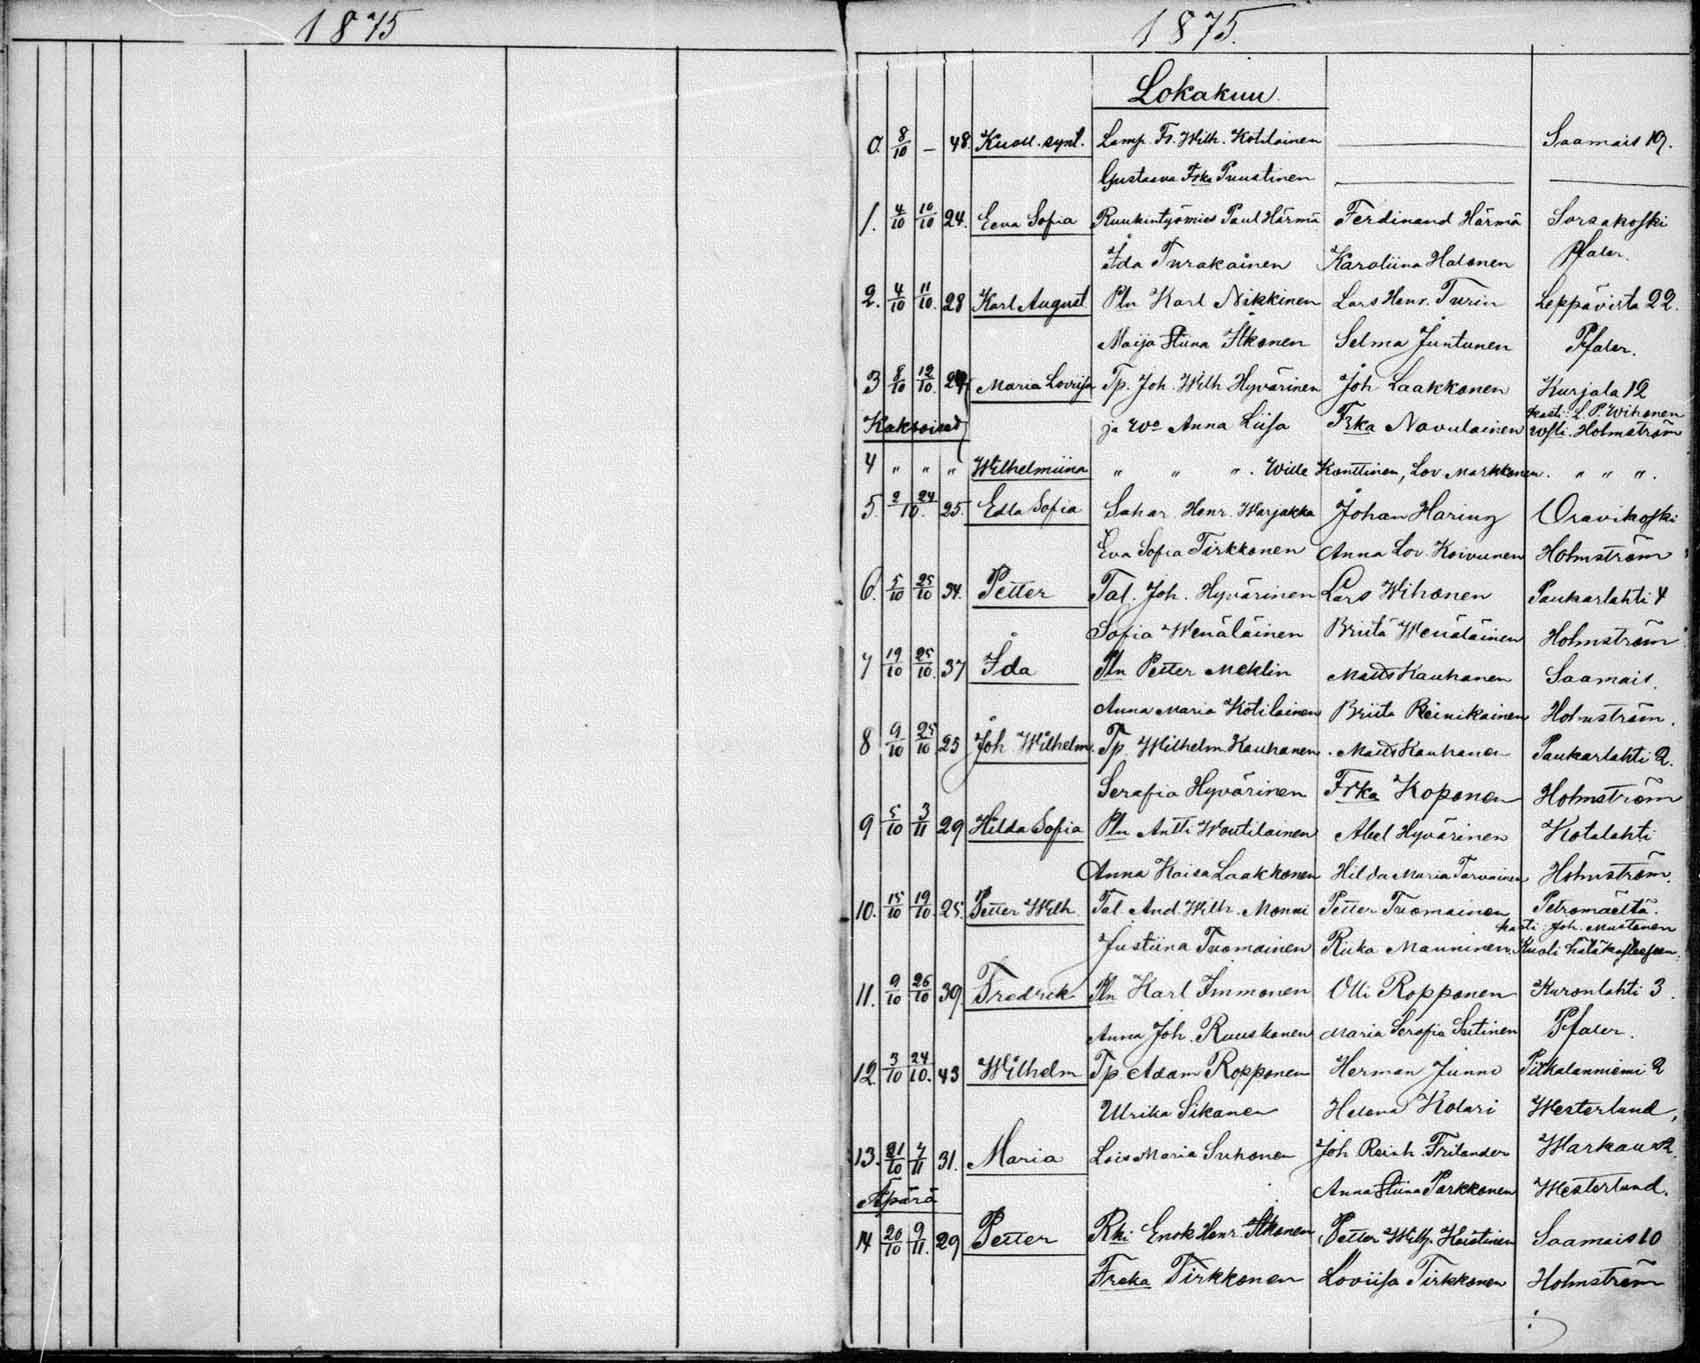 1875
1875.
Lokakuu.
0. 8/10 – 48. Kuoll. synt. Lamp. Fr. Wilh. Kotilainen Saamais 19.
Gustaava Frka Puustinen
1. 4/10 10/10 24. Eeva Sofia Ruukintyömies Paul Härmä Ferdinand Härmä Sorsakoski
Ida Turakainen Karoliina Halonen Pfaler.
2. 4/10 11/10. 28 Karl August Ptn Karl Nikkinen Lars Henr. Turin Leppävirta 22.
Maija Stiina Ikonen Selma Juntunen Pfaler.
3 8/10 12/10. Maria Loviisa Tp. Joh. Wilh Hyvärinen Joh Laakkonen Kurjala 12
kasti: L. P. Wihonen
Kaksoiset ja wo Anna Liisa Frka Navulainen Holmström
4 " " " Wilhelmiina " " ". Wille Konttinen, Lov Markkanen. " " ".
5. 2 24/10. 25. Edla Sofia Henr. Warjakka Johan Haring Oravikoski
Eva Sofia Tirkkonen Anna Lov. Koivunen Holmström
6. 5/10 25/10 34. Petter Tal. Joh. Hyvärinen Lars Wihonen Paukarlahti 4
Sofia Wenäläinen Briita Wenäläinen Holmström
7 19/10 25/10. 37 Ida Ptn Petter Meklin Matts Kauhanen Saamais.
Anna Maria Kotilainen Briita Reinikainen Holmström.
8 9/10 25/10 25 Joh Wilhelm. Tp. Wilhelm Kauhanen Matts Kauhanen Paukarlahti 2.
Serafia Hyvärinen Frka Koponen Holmström
9 5/10 3/11 29 Hilda Sofia Ptn Antti Woutilainen Abel Hyvärinen Kotalahti
Anna Kaisa Laakkonen Hilda Maria Tarvainen Holmström.
10. 15/10 19/10. 25. Petter Wilh. Tal. And. Wilh. Monni Petter Tuomainen Petromäeltä.
kasti Joh. Mustonen
Justiina Tuomainen Riika Manninen.
11. 9/10 26/10 39 Fredrik Ptn Karl Immonen Olli Ropponen Kuronlahti 3.
Anna Joh. Ruuskanen Maria Serafia Sutinen Pfaler.
12. 3/10 24/10. 43 Wilhelm Tp. Adam Ropponen Herman Junno Pitkälänniemi 2
Ulrika Sikanen Helena Kolari Westerlund,
13. 21/10 7/11 31. Maria Lois Maria Suhonen Joh Reinh. Frilander Warkaus 2.
Äpärä Anna Stiina Parkkonen Westerlund.
14 20/10 9/11. 29 Petter Rki Enok Henr. Ikonen Petter Wilh. Koistinen Saamais 10
Freka Tirkkonen Loviisa Tirkkonen Holmström